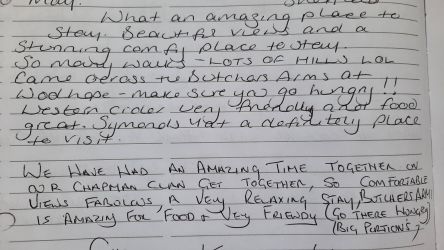 May.
What an amazing place to
stay. Beautiful views and a
stunning comfy place to stay.
So many walks - LOTS OF HILLS LOL
Came across the Butchers Arms at
Woolhope - make sure you go hungry!!
Western Cider very friendly and food
great. Symonds Yat a definitely place
to visit.
WE HAVE HAD AN AMAZING TIME TOGETHER ON
OUR CHAPMAN CLAN GET TOGETHER, SO COMFORTABLE
VIEWS FABOLOUS, A VERY RELAXING STAY, BUTCHERS ARMS
IS AMAZING FOR FOOD + VEY FRIENDY (GO THERE HUNGRY
(BIG PORTION'S